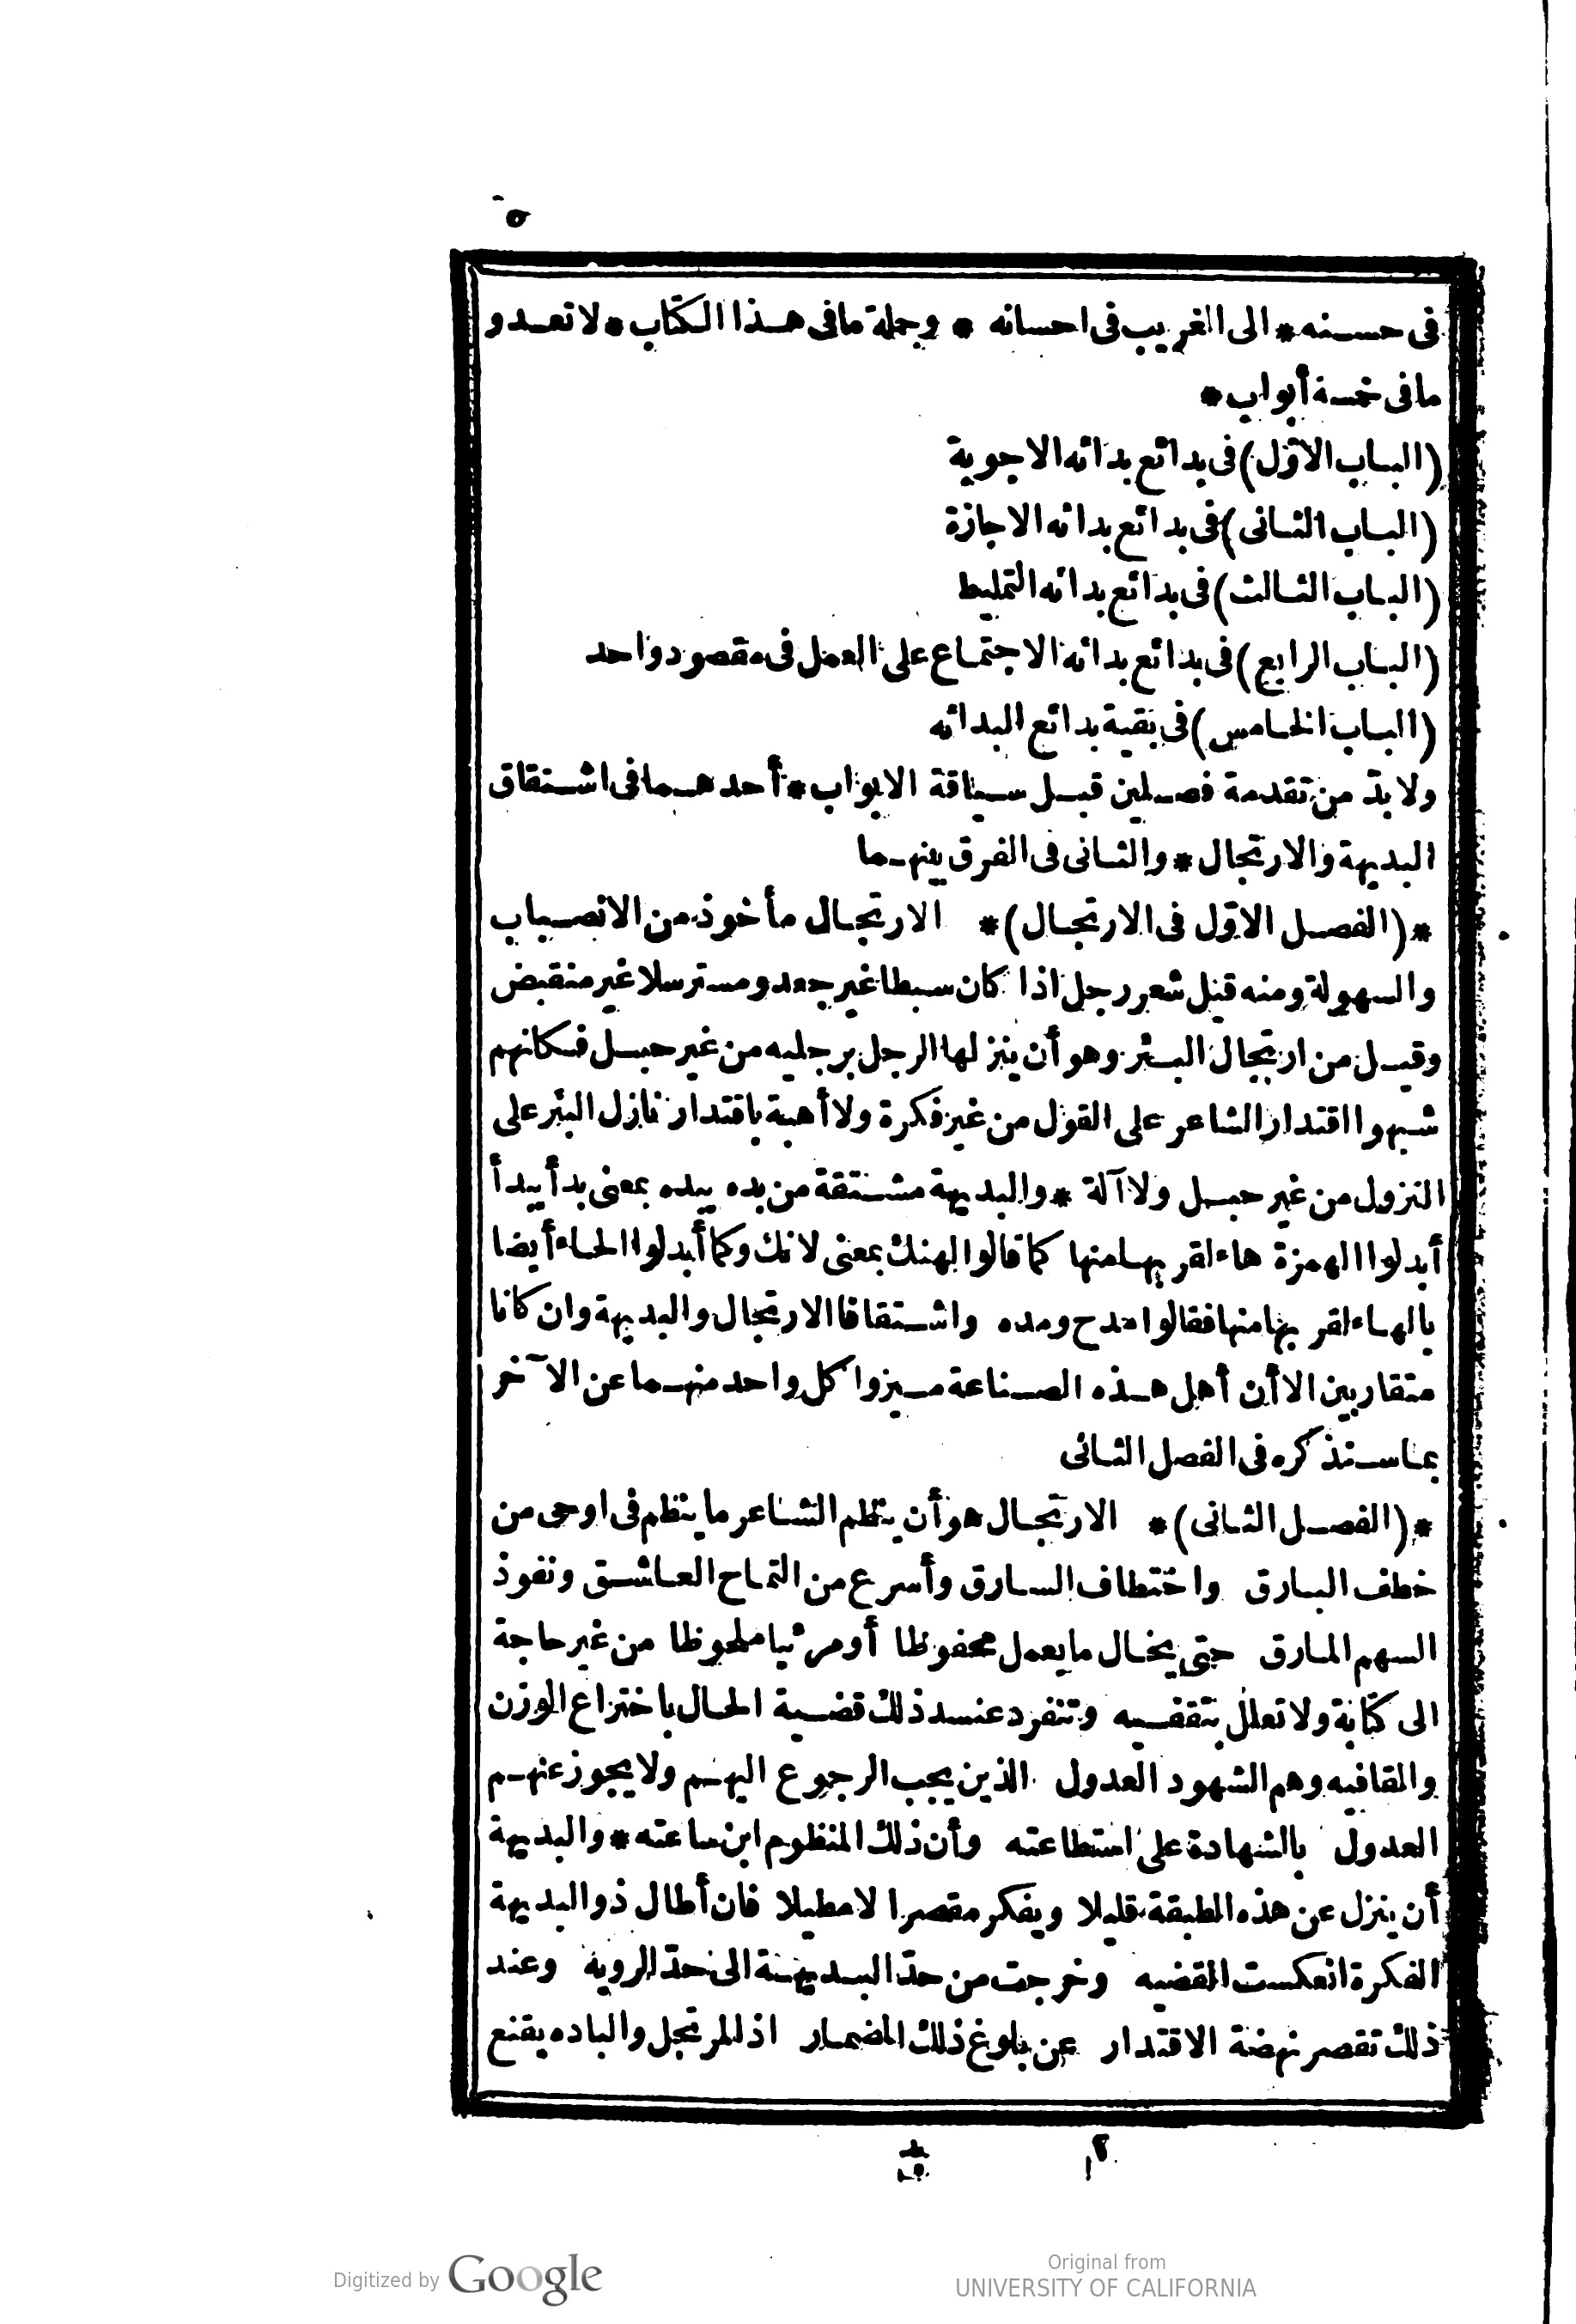 ٥
فى حسنه * الى الغريب فى احسانه * وجملة ما فى هذا الكتاب * لا تعدو
ما فى خمسة أبواب *
(الباب الاوّل) فى بدائع بدائه الاجوبة
(الباب الثانى) فى بدائع بدائه الاجازة
(الباب الثالث) فى بدائع بدائه التمليط
(الباب الرابع) فى بدائع بدائه الاجتماع على العمل فى مقصود واحد
(الباب الخامس) فى بقية بدائع البدائه
ولا بدّ من تقدمة فصلين قبل سياقة الابواب * أحدهما فى اشتقاق
البديهة والارتجال * والثانى فى الفرق بينهما
* (الفصل الاوّل فى الارتجال) * الارتجال مأخوذ من الانصباب
والسهولة ومنه قيل شعر رجل اذا كان سبطا غير جعد ومسترسلا غير منقبض
وقيل من ارتجال البئر وهو أن ينزلها الرجل برجليه من غير حبل فكانهم
شبهوا اقتدار الشاعر على القول من غير فكرة ولا أهبة باقتدار نازل البئر على
النزول من غير حبل ولا آلة * والبديهة مشتقة من بده يبده بمعنى بدأ يبدأ
أبدلوا الهمزة هاء لقربها منها كما قالوا لهنك بمعنى لانك وكما أبدلوا الحاء أيضا
بالهاء لقربها منها فقالوا مدح ومده واشتقاقا الارتجال والبديهة وان كانا
متقاربين الا أن أهل هذه الصناعة ميزوا كل واحد منهما عن الآخر
بما سنذكره فى الفصل الثانى
* (الفصل الثانى) * الارتجال هو أن ينظم الشاعر ما ينظم فى اوحى من
خطف البارق واختطاف السارق وأسرع من التماح العاشق ونفوذ
السهم المارق حتى يخال ما يعمل محفوظا أو مرئيا ملحوظا من غير حاجة
الى كتابة ولا تعلل بتقفيه وتنفرد عند ذلك قضية الحال باختراع الوزن
والقافيه وهم الشهود العدول الذين يجب الرجوع اليهم ولا يجوز عنهم
العدول بالشهادة على استطاعته وأن ذلك المنظوم ابن ساعته * والبديهة
أن ينزل عن هذه الطبقة قليلا ويفكر مقصرا لا مطيلا فان أطال ذو البديهة
الفكرة انعكست القضيه وخرجت من حدّ البديهة الى حدّ الرويه وعند
ذلك تقصر نهضة الاقتدار عن بلوغ ذلك المضمار اذ المرتجل والباده يقنع
Digitized by Google
Original from
UNIVERSITY OF CALIFORNIA